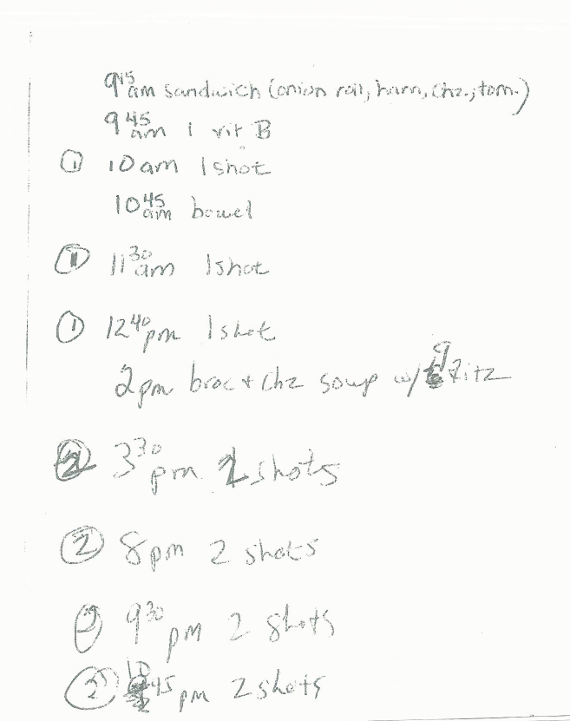 9:15 am sandwich (onion roll, ham, chz., tom.)
9:45 am 1 vit B
① 10 am 1 shot
10:45 am bowel
① 11:30 am 1 shot
① 12:40 pm 1 shot
2 pm broc + chz soup w/ 9 Ritz
② 3:30 pm 2 shots
② 8 pm 2 shots
9:30 pm 2 shots
② 10:45 pm 2 shots